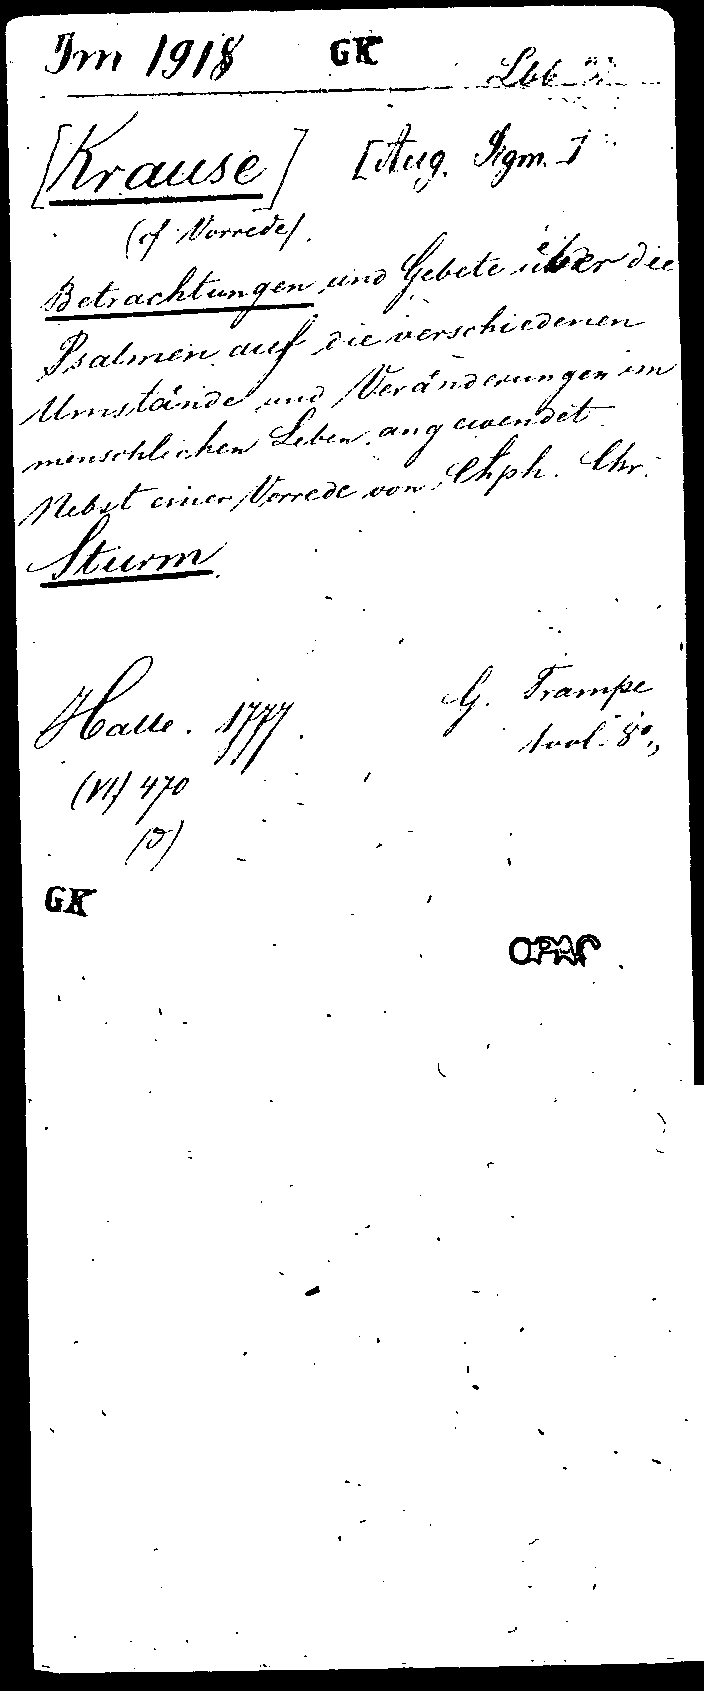 Im 1918 GK Lbb
[Krause] [Aug. Sigm.]
(cf Vorrede).
Betrachtungen und Gebete über die
Psalmen auf die verschiedenen
Umstände und Veränderungen im
menschlichen Leben angewendet.
Nebst einer Vorrede von Chph. Chr.
Sturm.
Halle. 1777. G. Trampe
(VI) 470 1 vol. 8°.
GK